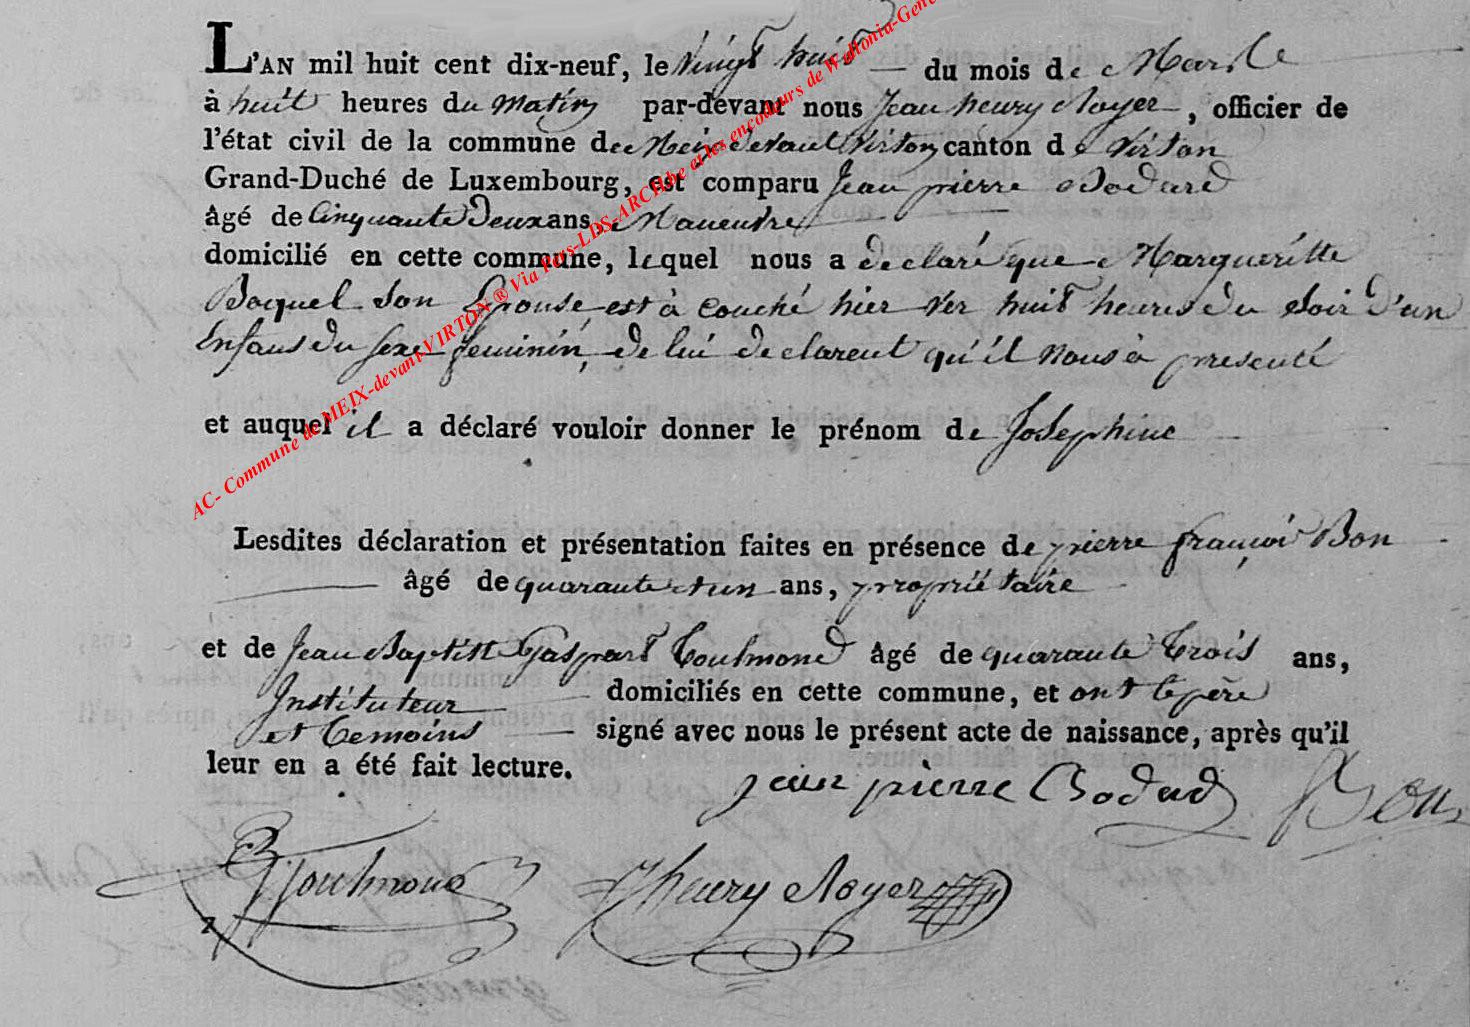 L'AN mil huit cent dix-neuf, le vingt huit du mois de Mars
à huit heures du matin par-devant nous Jean henry Noyer, officier de
l'état civil de la commune de Meix devant Virton canton de Virton
Grand-Duché de Luxembourg, est comparu Jean pierre Bodard
âgé de Cinquante Deux ans, Maneuvre
domicilié en cette commune, lequel nous a declaré que Margueritte
Bocquel son Epouse est à couché hier ver huit heures du Soir d'un
Enfans du sexe feminin, de lui declarent qu'il nous à presenté
et auquel il a déclaré vouloir donner le prénom de Josephine
Lesdites déclaration et présentation faites en présence de pierre françoi Bon
âgé de quarante et un ans, proprietaire
et de Jean Baptist Gaspard Toulmond âgé de quarante Trois ans,
Instituteur domiciliés en cette commune, et ont le père
et Temoins signé avec nous le présent acte de naissance, après qu'il
leur en a été fait lecture.
jean pierre Bodad Bon
Toulmond Jhenry Noyer
AC- Commune de MEIX-devant-VIRTON ® Via Pers-LDS-ARCH.be et les encodeurs de Wallonia-Gene